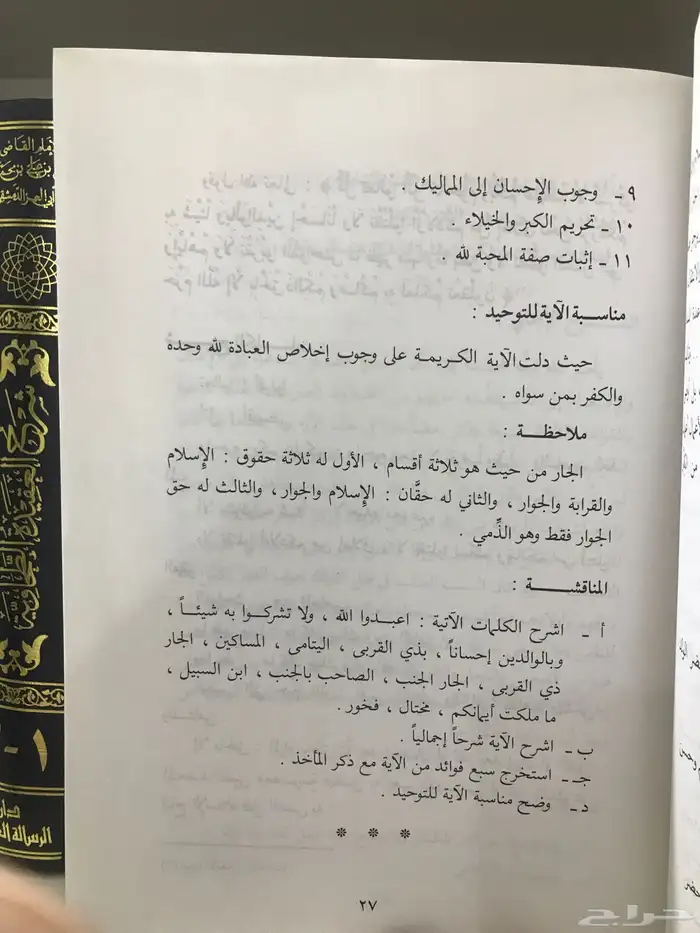 ٩ ـ وجوب الإِحسان إلى المماليك .
١٠ ـ تحريم الكبر والخيلاء .
١١ ـ إثبات صفة المحبة لله .
مناسـبة الآية للتوحيد :
حيث دلت الآية الكـريمـة على وجوب إخلاص العبادة لله وحده
والكفر بمن سواه .
ملاحظـة :
الجار من حيث هو ثلاثة أقسام ، الأول له ثلاثة حقوق : الإِسلام
والقرابة والجوار ، والثاني له حقَّان : الإِسلام والجوار، والثالث له حق
الجوار فقط وهو الذِّمي .
المناقشـــة :
أ ـ اشرح الكلمات الآتية : اعبـدوا الله ، ولا تشركـوا به شيئـاً ،
وبالوالدين إحساناً ، بذي القربى ، اليتامى ، المساكين ، الجار
ذي القربى ، الجار الجنب ، الصاحب بالجنب ، ابن السبيل ،
ما ملكت أيمانكم ، مختال ، فخور .
ب ـ اشرح الآية شرحاً إجمالياً .
جـ ـ استخرج سبع فوائد من الآية مع ذكر المأخذ .
د ـ وضح مناسبة الآية للتوحيد .
* * *
٢٧
شرح العقيدة الطحاوية
١-٢
حراج